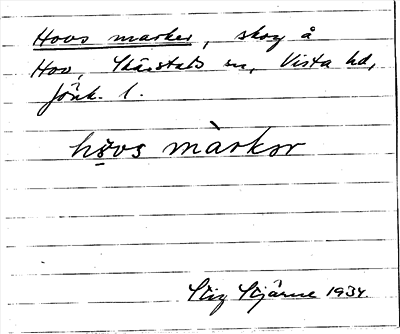 Hovs marker, skog å
Hov, Skärstads sn, Vista hd,
Jönk. l.
hɷvs màrkər
Stig Stjärne 1934.